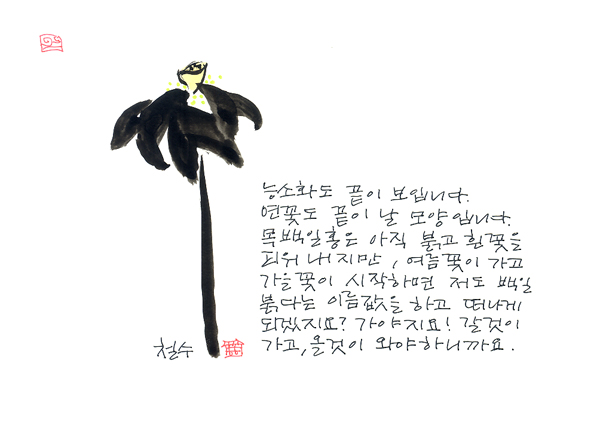 능소화도 끝이 보입니다.
연꽃도 끝이 날 모양입니다.
목백일홍은 아직 붉고 흰꽃을
피워 내지만, 여름꽃이 가고
가을꽃이 시작하면 저도 백일
붉다는 이름값을 하고 떠나게
되겠지요? 가야지요! 갈것이
가고, 올것이 와야하니까요.
철수